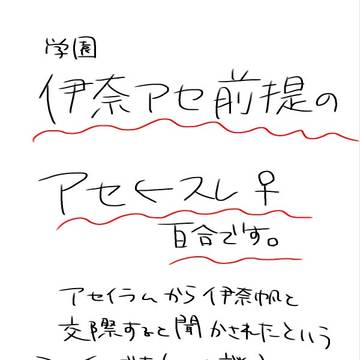 学園
伊奈アセ前提の
アセ←スレ♀
百合です。
アセイラムから伊奈帆と
交際すると聞かされたという